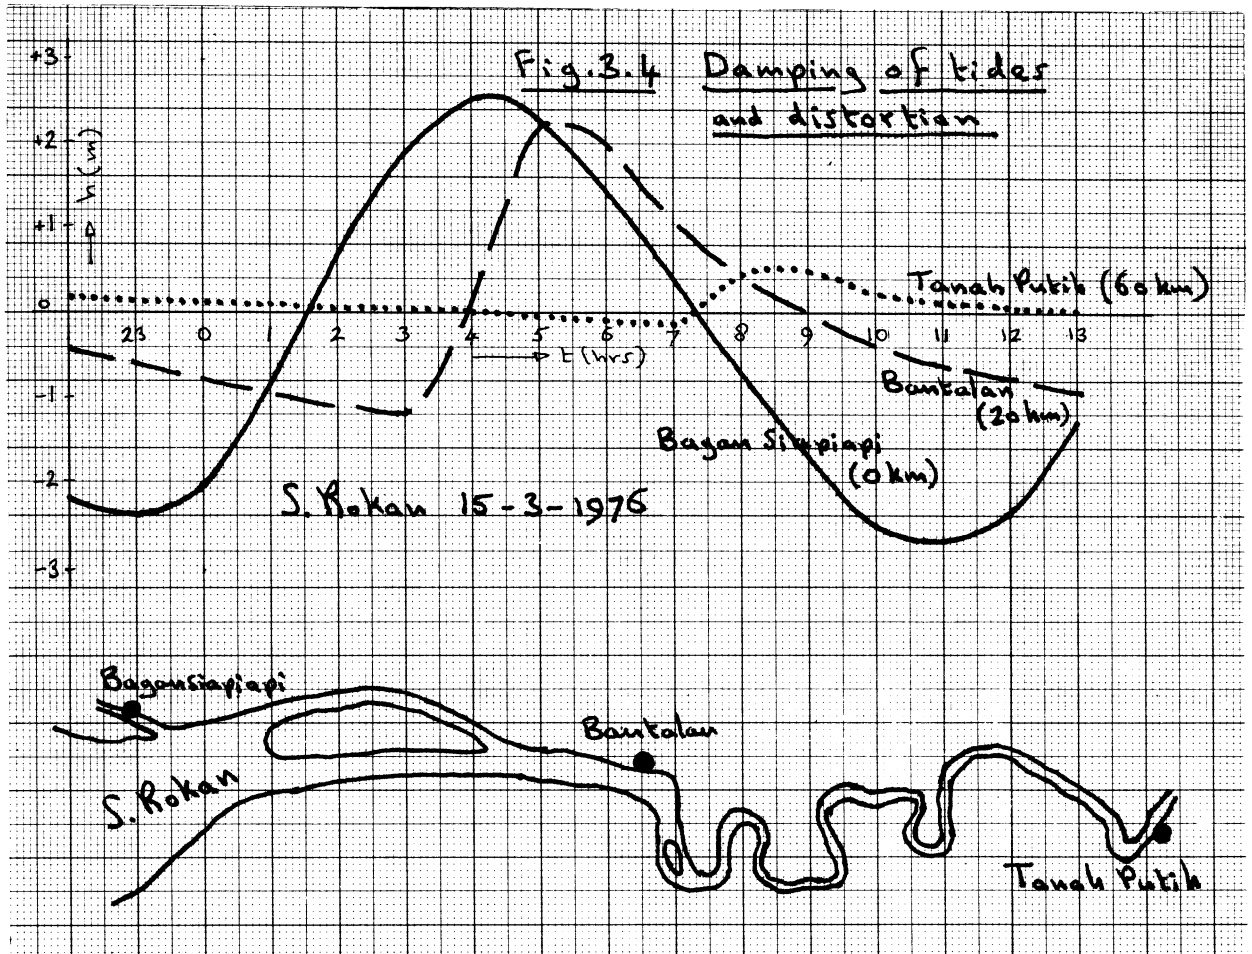 Fig.3.4 Damping of tides
and distortion
+3
+2
h (m)
+1
0
-1
-2
-3
23 0 1 2 3 4 5 6 7 8 9 10 11 12 13
t (hrs)
Tanah Putih (60 km)
Bantalan
(20 km)
Bagan Siapiapi
(0 km)
S. Rokan 15-3-1976
Bagansiapiapi
Bantalan
S. Rokan
Tanah Putih